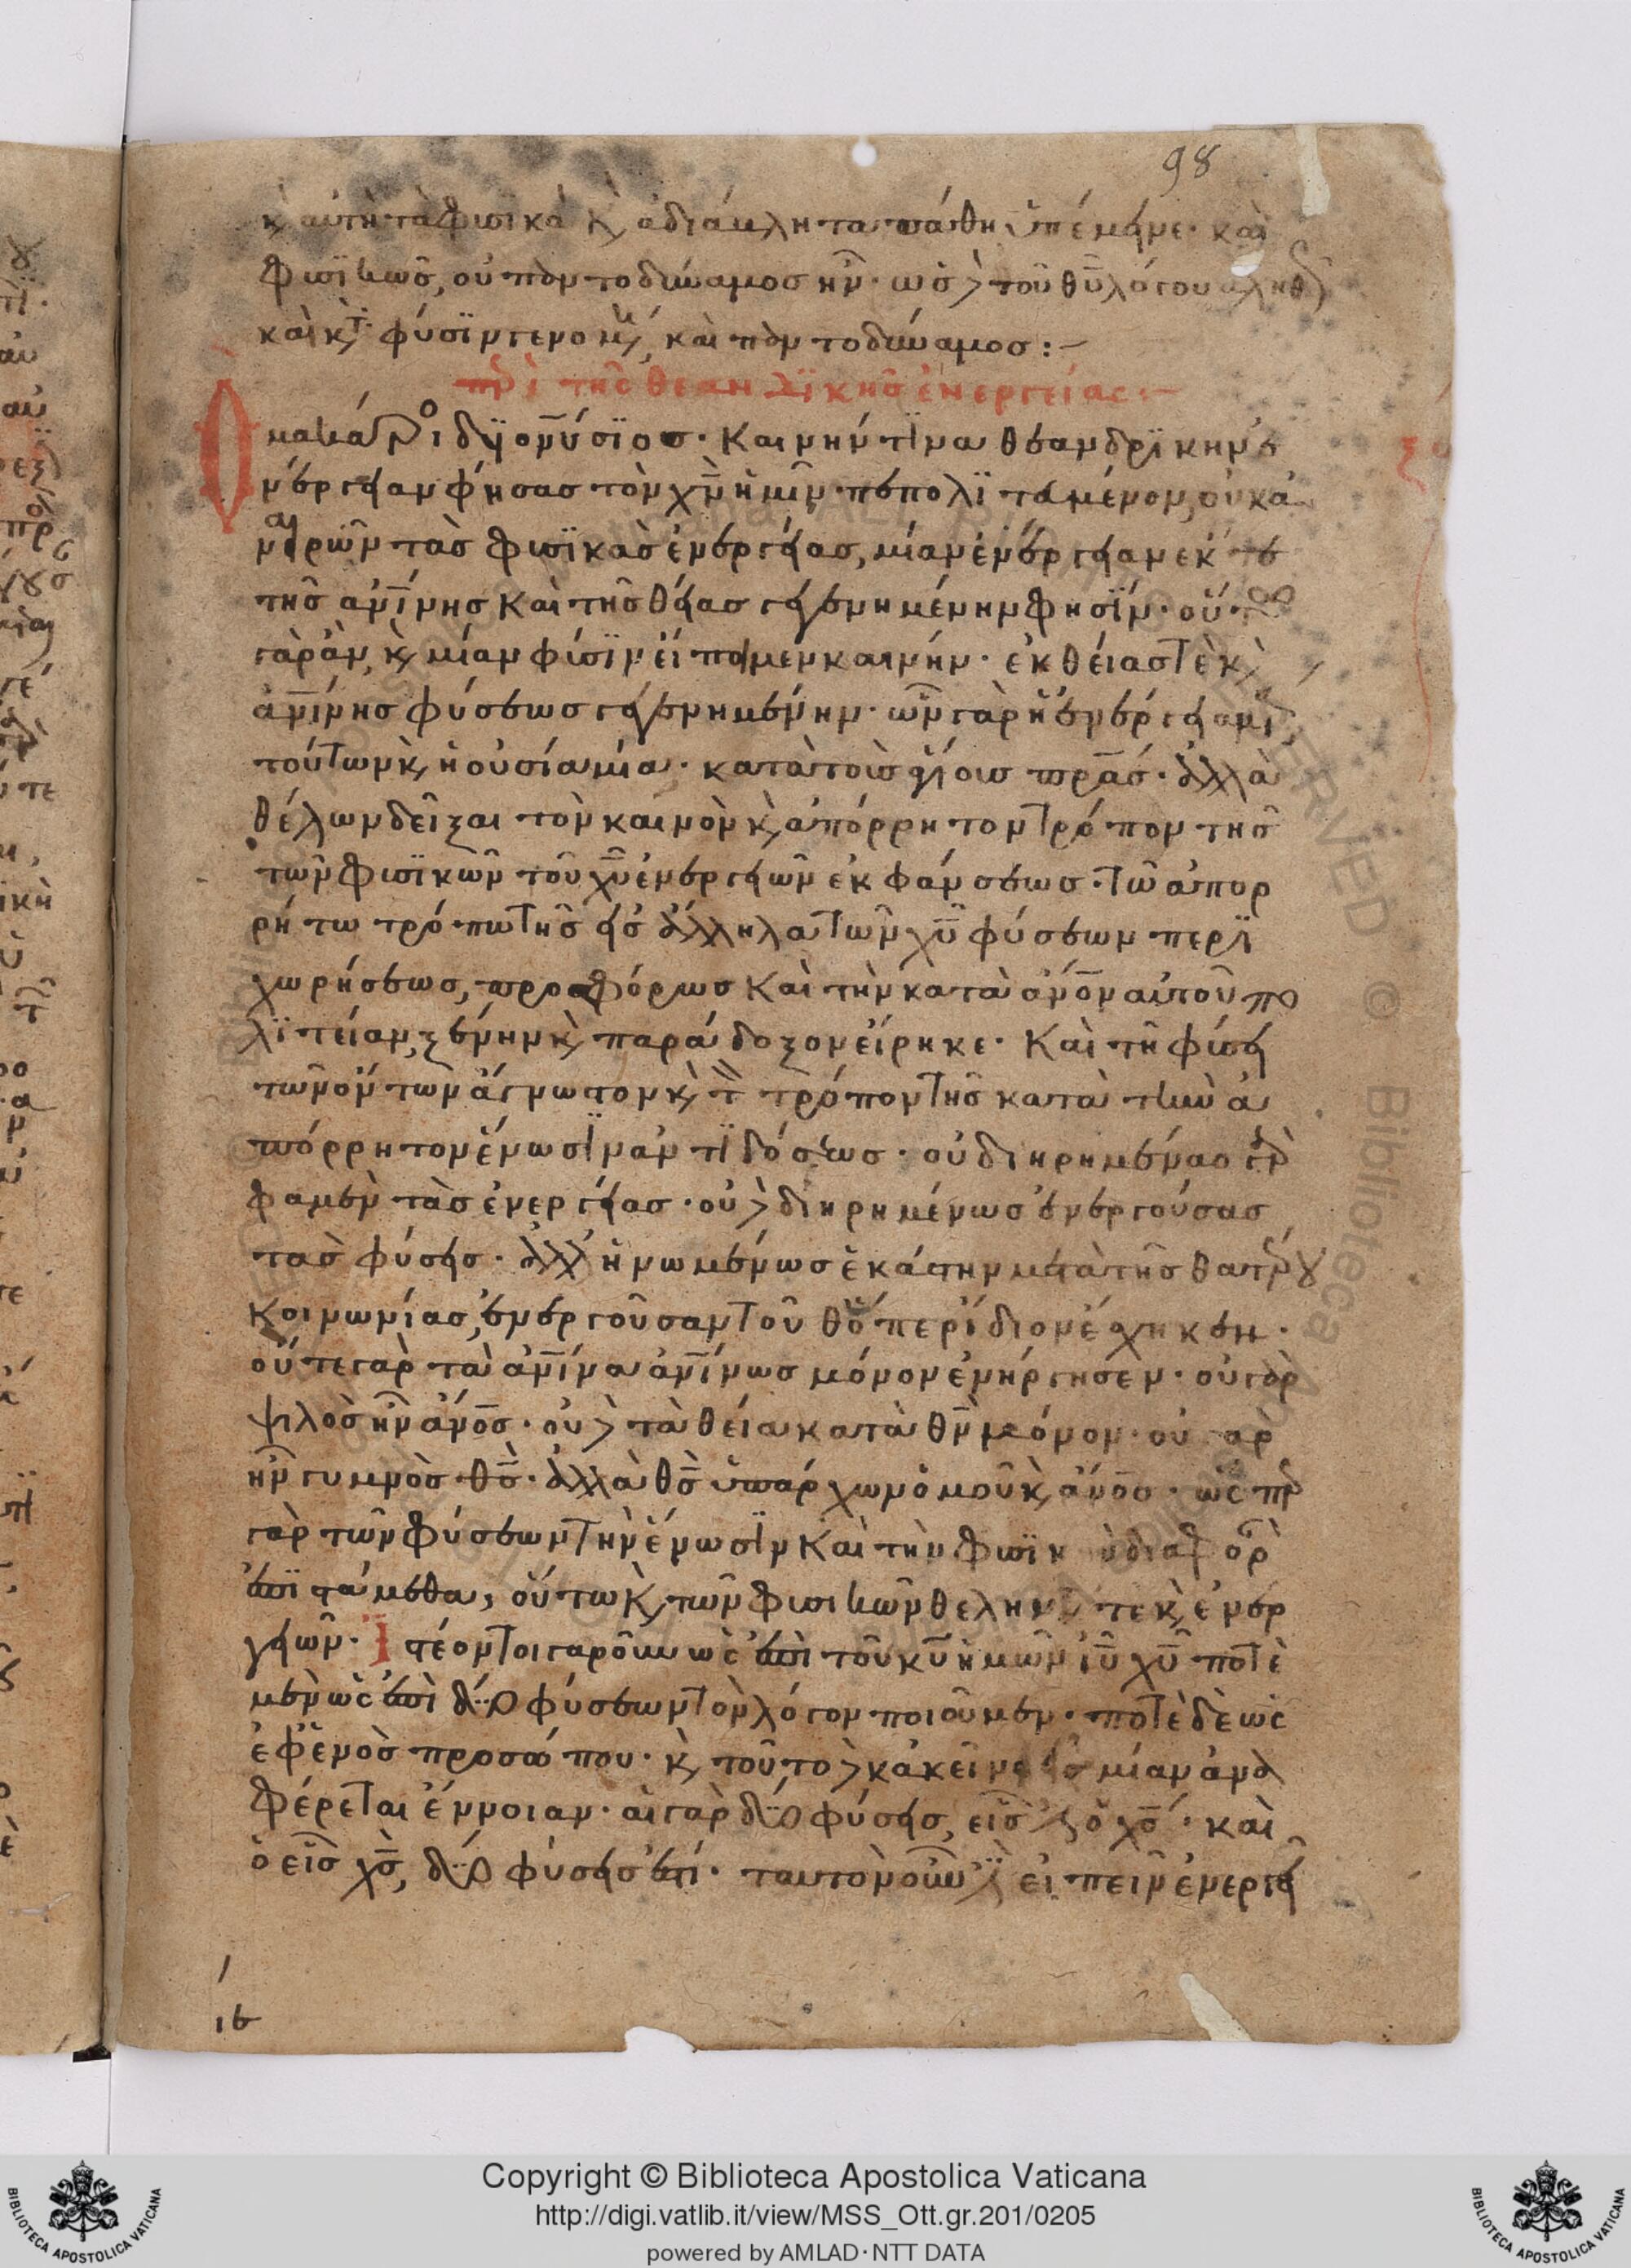 98
κ αὐτὴ τὰ φυσϊκὰ κ ἀδιάβλητα πάθη ὑπέμεινε· καὶ
φυσϊκῶς, οὐ παντοδύναμος ἦν· ὡς δὲ τοῦ θῦ λόγου ἀληθ
καὶ κτ φύσϊν γενομ, καὶ παντοδύναμος:-
πρὶ τῆς θεανδρϊκῆς ἐνεργείας:-
Ὁ μακάριο δϊονύσϊος· καινήν τϊνα θεανδρϊκὴν ἐ
νέργειαν φήσας τὸν χν ἡμῖν πεπολϊτευμένον, οὐκ ἀ
ναιρῶν τὰς φυσϊκὰς ἐνεργείας, μίαν ἐνέργειαν ἐκ τε
τῆς ἀνίνης καὶ τῆς θείας γεγενημένην φησϊν· οὕτω
γὰρ ἂν κ μίαν φύσϊν εἴποιμεν καινήν· ἐκ θείας τὲ κ
ἀνίνης φύσεως γεγενημένην· ὧν γὰρ ἡ ἐνέργεια μί
τούτων κ ἡ οὐσία μία· κατὰ τοὺς ἁγίους πρας· ἀλλὰ
θέλων δεῖξαι τὸν καινὸν κ ἀπόρρητον τρόπον τῆς
τῶν φυσϊκῶν τοῦ χῦ ἐνεργειῶν ἐκφάνσεως· τῶ ἀπορ
ρήτω τρόπω τῆς εἰς ἄλληλα τῶν χῦ φύσεων περϊ
χωρήσεως, προσφόρως καὶ τὴν κατὰ ἄνον αὐτοῦ πο
λϊτείαν, ξένην κ παράδοξον εἴρηκε· καὶ τῆ φύσει
τῶν ὄντων ἄγνωστον κ τ τρόπον τῆς κατὰ τὴν ἀ
πόρρητον ἕνωσϊν ἀντϊδόσεως· οὐ διηρημένας γὰρ
φαμὲν τὰς ἐνεργείας· οὐδὲ διηρημένως ἐνεργούσας
τὰς φύσεις· ἀλλ ἡνωμένως ἑκάστην μετὰ τῆς θατέρου
κοινωνίας, ἐνεργοῦσαν τοῦ θ ὅπερ ἴδιον ἔσχηκεν·
οὔτε γὰρ τὰ ἀνίνα ἀνίνως μόνον ἐνήργησεν· οὐ γὰρ
ψιλὸς ἦν ἄνος· οὐδὲ τὰ θεία κατὰ θν μόνον· οὐ γὰρ
ἦν γυμνὸς θς· ἀλλὰ θς ὑπάρχων ὁμοῦ κ ἄνος· ὥσπερ
γὰρ τῶν φύσεων τὴν ἕνωσϊν καὶ τὴν φυσϊκὴν διαφορὰ
ἐπϊστάμεθα, οὕτω κ τῶν φυσικῶν θελημ τε κ ἐνερ
γειῶν· Ἰστέον τοιγαροῦν ὡς ἐπὶ τοῦ κῦ ἡμῶν ιῦ χῦ ποτὲ
μὲν ὡς ἐπὶ δύο φύσεων τὸν λόγον ποιοῦμεν· ποτὲ δὲ ὡς
ἐφ ἑνὸς προσώπου· κ τοῦτο δὲ κἀκεῖνο εἰς μίαν ἀνα
φέρεται ἔννοιαν· αἱ γὰρ δύο φύσεις, εἷς ἐστὶν ὁ χς· καὶ
ὁ εἷς χς, δύο φύσεις ἐστί· ταυτὸν οὖν ἐστὶν εἰπεῖν ἐνεργεῖ
16
Copyright © Biblioteca Apostolica Vaticana
http://digi.vatlib.it/view/MSS_Ott.gr.201/0205
powered by AMLAD·NTT DATA
BIBLIOTECA APOSTOLICA VATICANA
BIBLIOTECA APOSTOLICA VATICANA